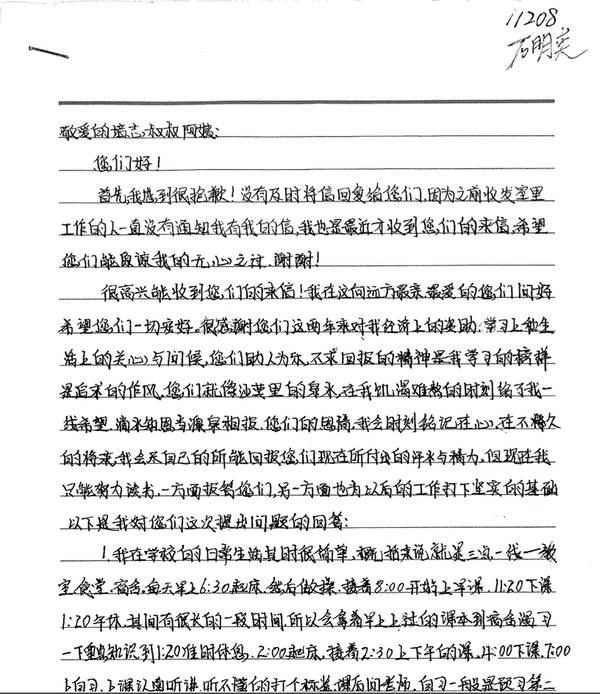 11208
石明奕
敬爱的 叔叔阿姨:
您们好!
首先,我感到很抱歉!没有及时将信回复给您们,因为之前收发室里
工作的人一直没有通知我有我的信,我也是最近才收到您们的来信,希望
您们能原谅我的无心之过,谢谢!
很高兴能收到您们的来信!我在这向远方最亲最爱的您们问好
希望您们一切安好。很感谢您们这两年来对我经济上的资助,学习上和生
活上的关心与问候,您们助人为乐,不求回报的精神是我学习的榜样
是追求的作风,您们就像沙芒里的泉水,在我饥渴难熬的时刻给了我一
线希望,滴水知恩当涌泉相报,您们的恩情,我会时刻铭记在心,在不久
的将来,我会尽自己的所能回报您们现在所付出的汗水与精力,但现在我
只能努力读书,一方面报答您们,另一方面也为以后的工作打下坚实的基础
以下是我对您们这次提出问题的回答:
1.我在学校的日常生活其时很简单,概括来说就是三点一线—教
室,食堂,宿舍,每天早上6:30起床,然后做操,接着8:00开始上早课,11:20下课
1:20午休,其间有很长的一段时间,所以会拿着早上上过的课本到宿舍温习
一下重点知识到1:20准时休息,2:00起床,接着2:30上下午的课,4:00下课,7:00
上自习,上课认真听讲,听不懂的打个标签,课后问老师,自习一般是预习第二